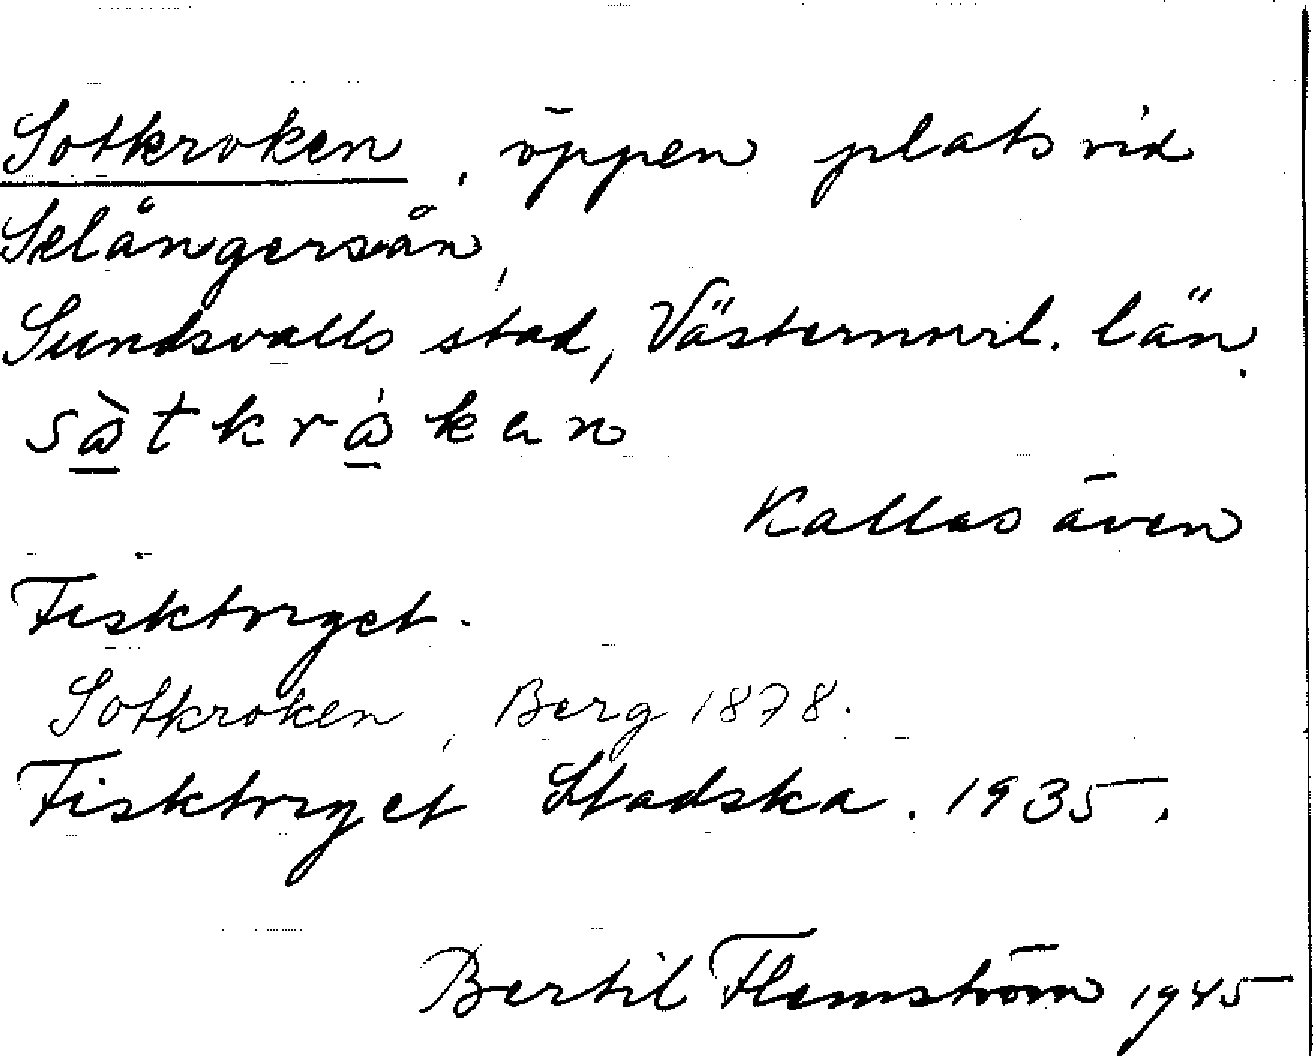 Sotkroken, öppen plats vid
Selångersån,
Sundsvalls stad, Västernorrl. län.
såtkråken
Kallas även
Fisktorget.
Sotkroken, Berg 1878.
Fisktorget Stadska. 1935.
Bertil Flemström 1945